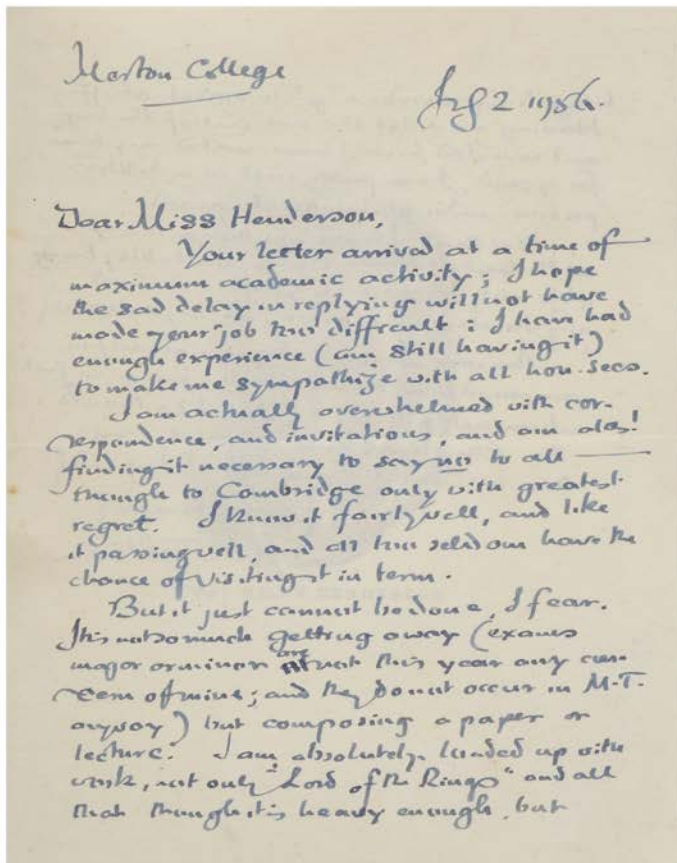 Merton College
July 2 1956.
Dear Miss Henderson,
Your letter arrived at a time of
maximum academic activity; I hope
the sad delay in replying will not have
made your job too difficult: I have had
enough experience (am still having it)
to make me sympathize with all hon. secs.
I am actually overwhelmed with cor-
respondence, and invitations, and am alas!
finding it necessary to say no to all —
though to Cambridge only with greatest
regret. I know it fairly well, and like
it passing well, and all too seldom have the
chance of visiting it in term.
But it just cannot be done, I fear.
It is not so much getting away (exams
major or minor are not this year any con-
cern of mine; and they do not occur in M.T.
anyway) but composing a paper or
lecture. I am absolutely loaded up with
work, not only "Lord of the Rings" and all
that though it is heavy enough, but